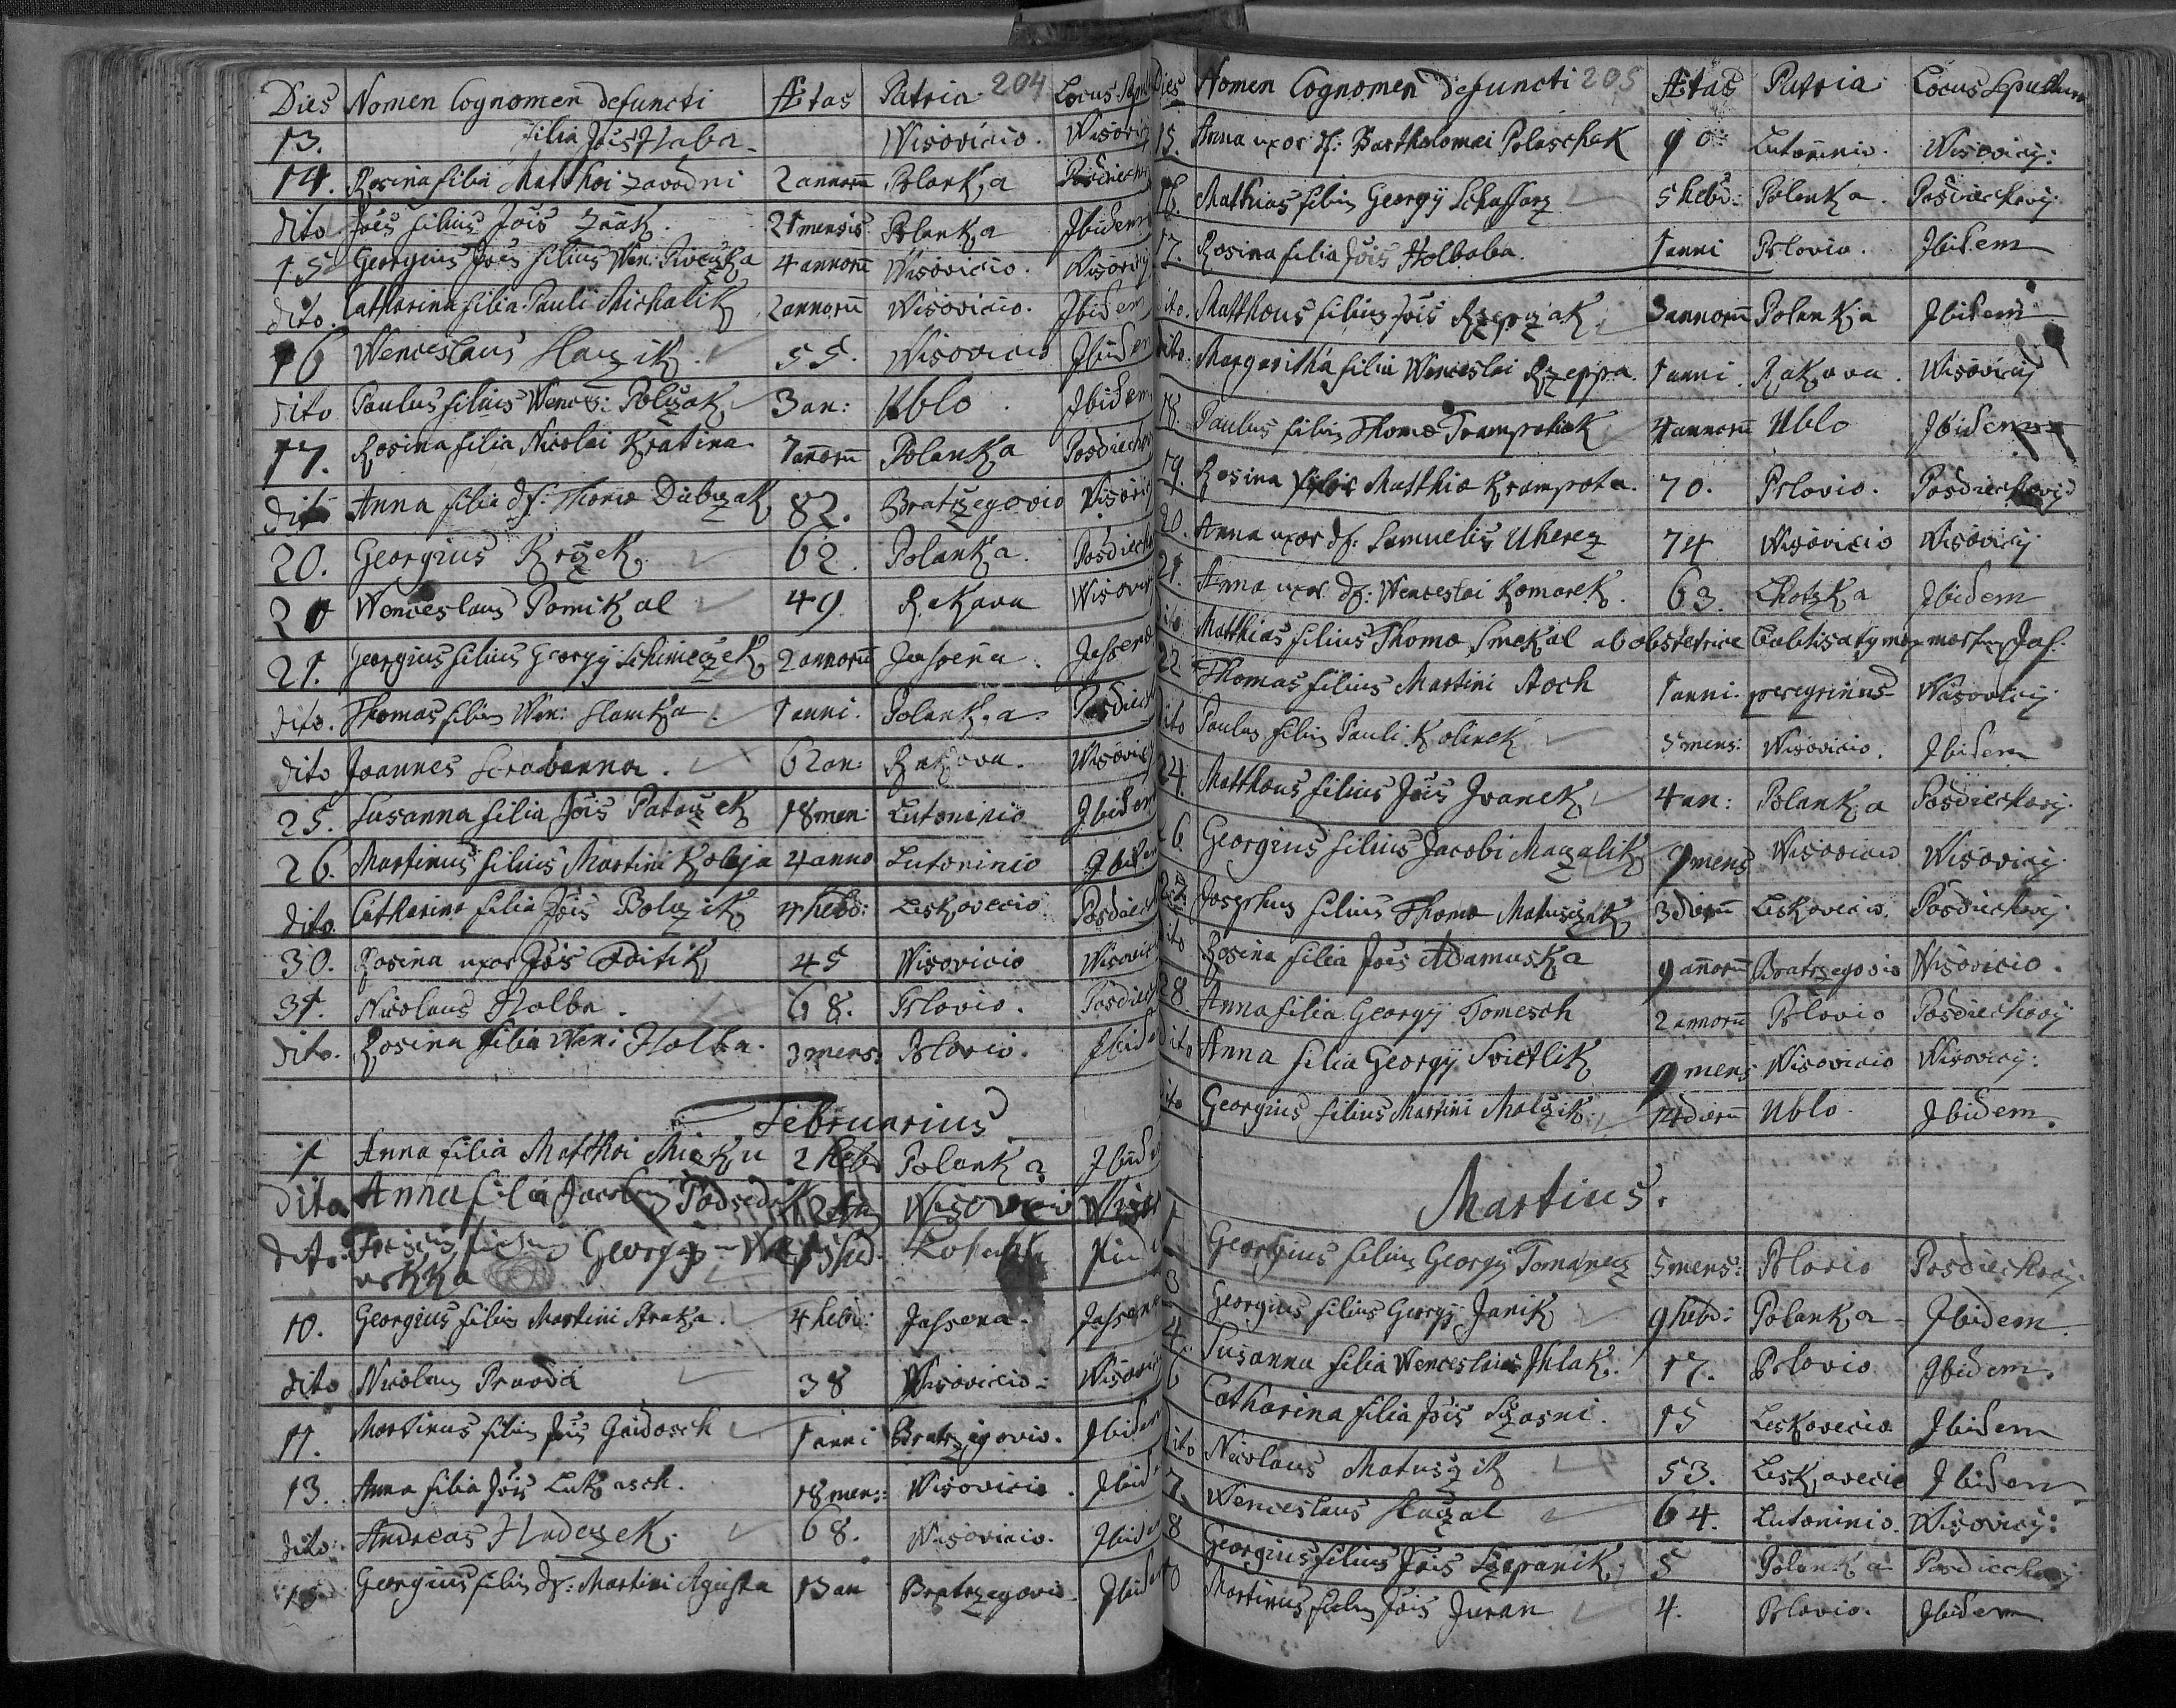 Dies Nomen Cognomen defuncti Ætas Patria 204 Locus
13. filia Jois Haba Wisovicio. Wisovicij
14. Rosina filia Matthæi Zavodni 2 annorũ Polanka Posdiech
dito Jões filius Jois 21 mensis Polanka Ibidem
15 Georgius Jões filius Wen: 4 annorũ Wisovicio. Wisovicij
dito. Catharina filia Pauli Michalik 2 annorũ Wisovicio. Ibidem
16 Wenceslaus 55. Wisovicio Ibidem
dito Paulus filius Wences: Polczak 3 an: Ublo. Ibidem
17. Rosina filia Nicolai Kratina 7 anorũ Polanka Posdiechov
dito Anna filia df: Thomæ Dubczak 82. Bratrzegovio Wisovicij
20. Georgius Krczek 62. Polanka. Posdiech
20 Wenceslaus Pomikal 49 Rakava Wisovic
21. Georgius filius Georgij Schimeczek 2 annorũ Jassena. Jassena
dito. Thomas filius Wen: Slamka. 1 anni. Polanka. Posdiech
dito Joannes Scrabanna. 62 an: Rakova. Wisovicij
25. Susanna filia Jois 18 men: Lutoninio Ibidem
26. Martinus filius Martini Koleja 4 anno Lutoninio Ibidem
dito. Catharina filia Jois Bolczik 4 hebd: Leskovecio. Posdiech
30. Rosina uxor Jois 45 Wisovicio Wisovic
31. Nicolaus Holba. 68. Prlovio. Posdiech
dito. Rosina filia Weni Holba. 3 mens: Prlovio. Ibid
Februarius
1 Anna filia Matthæi Miczku 2 hebd Polanka Ibid
dito Anna filia Jacobi Wisovicio Wisov
dito. Georgij
10. Georgius filius Martini Straka. 4 hebd: Jassena. Jassena
dito Nicolaus Pravda 38 Wisovicio: Wisovic
11. Martinus filius Jois Gaidosch 1 anni Bratrzegovio. Ibidem
13. Anna filia Jois Lukasch. 18 mens: Wisovicio. Ibid
dito: Andreas Hudeczek. 68. Wisovicio. Ibidem
15 Georgius filius df: Martini Agusta 13 an Bratrzegovio. Ibidem
Dies Nomen Cognomen defuncti 205 Ætas Patria Locus Sepulturæ
15. Anna uxor df: Bartholomei Polaschek 90 Lutoninio. Wisovicij:
16. Mathias filius Georgij Schaffarz 5 hebd: Polanka. Posdiechovij.
17. Rosina filia Jois Holbaba. 1 anni Prlovio. Ibidem
dito. Matthæus filius Jois Rzepczak 3 annorũ Polanka Ibidem
dito. Margaritha filia Wenceslai Rzeppa. 1 anni. Rakova. Wisovicij
18. Paulus filius Thomæ Trampoliak 4 annorũ Ublo Ibidem
19. Rosina Matthiæ Krampota. 70. Prlovio. Posdiechovij
20. Anna uxor df: Samuelis Uherez 74 Wisovicio Wisovicij
21. Anna uxor df: Wenceslai Komarek. 63. Lhotzka Ibidem
dito Matthias filius Thomæ Smekal ab obstetrice
22 Thomas filius Martini Stoch 1 anni. peregrinus Wisovicij
dito Paulus filius Pauli Kolinek 5 mens: Wisovicio. Ibidem
24. Matthæus filius Jois Ivanek 4 an: Polanka Posdiechovij.
26 Georgius filius Jacobi Maczalik 9 mens Wisovicio Wisovicij.
27 Josephus filius Thomæ Matuschik 3 dierũ Leskovecio. Posdiechovij
dito Rosina filia Jois Adamuska 9 anorũ Bratrzegovio Wisovicio.
28. Anna filia Georgij Tomesch 2 annorũ Prlovio Posdiechovij
dito Anna filia Georgij Svietlik 9 mens Wisovicio Wisovicij:
dito Georgius filius Martini Malczik 14 dierũ Ublo. Ibidem.
Martius.
1 Georgius filius Georgij Tomanecz 5 mens: Prlovio Posdiechovij.
3 Georgius filius Georgij Janik 9 hebd: Polanka Ibidem.
4. Susanna filia Wenceslaus 17. Prlovio Ibidem.
6 Catharina filia Jois Sczasni. 15 Leskovecio Ibidem
dito Nicolaus Matuschik 53. Leskovecio Ibidem
7. Wenceslaus 64. Lutoninio. Wisovicij:
8 Georgius filius Jois Sczepanik 5 Polanka Posdiechovij
10 Martinus filius Jois Juran 4. Prlovio. Ibidem